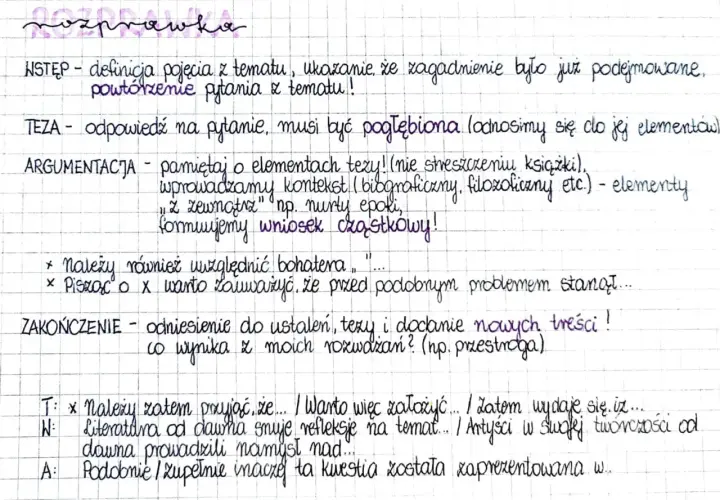 ROZPRAWKA
rozprawka
WSTĘP - definicja pojęcia z tematu, ukazanie, że zagadnienie było już podejmowane,
powtórzenie pytania z tematu!
TEZA - odpowiedź na pytanie, musi być pogłębiona (odnosimy się do jej elementów)
ARGUMENTACJA - pamiętaj o elementach tezy! (nie streszczeniu książki),
wprowadzamy kontekst (biograficzny, filozoficzny etc.) - elementy
"z zewnątrz" np. nurty epoki,
formułujemy wniosek cząstkowy!
× Należy również uwzględnić bohatera " "...
× Pisząc o X warto zauważyć, że przed podobnym problemem stanął...
ZAKOŃCZENIE - odniesienie do ustaleń, tezy i dodanie nowych treści!
co wynika z moich rozważań? (np. przestroga)
T: × Należy zatem przyjąć, że... / Warto więc założyć... / Zatem wydaje się, iż...
W: Literatura od dawna snuje refleksje na temat... / Artyści w swojej twórczości od
dawna prowadzili namysł nad...
A: Podobnie / zupełnie inaczej ta kwestia została zaprezentowana w...